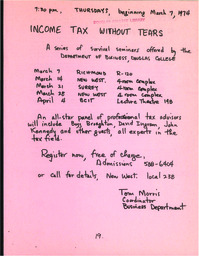 7:30 pm, THURSDAYS, beginning March 7, 1974
INCOME TAX WITHOUT TEARS
A series of survival seminars offered by the
DEPARTMENT OF BUSINESS, DOUGLAS COLLEGE
March 7 RICHMOND R-120
March 14 NEW WEST. 4 room Complex
March 21 SURREY 4 room Complex
March 28 NEW WEST. 4 room Complex
April 4 BCIT Lecture Theatre
An all-star panel of professional tax advisors
will include Broughton, David Ingram, John
Kennedy and other guests, all experts in the
tax field.
Register now, free of charge,
Admissions 588-6404
or call for details, New West. local 238
Tom Morris
Coordinator
Business Department
19.